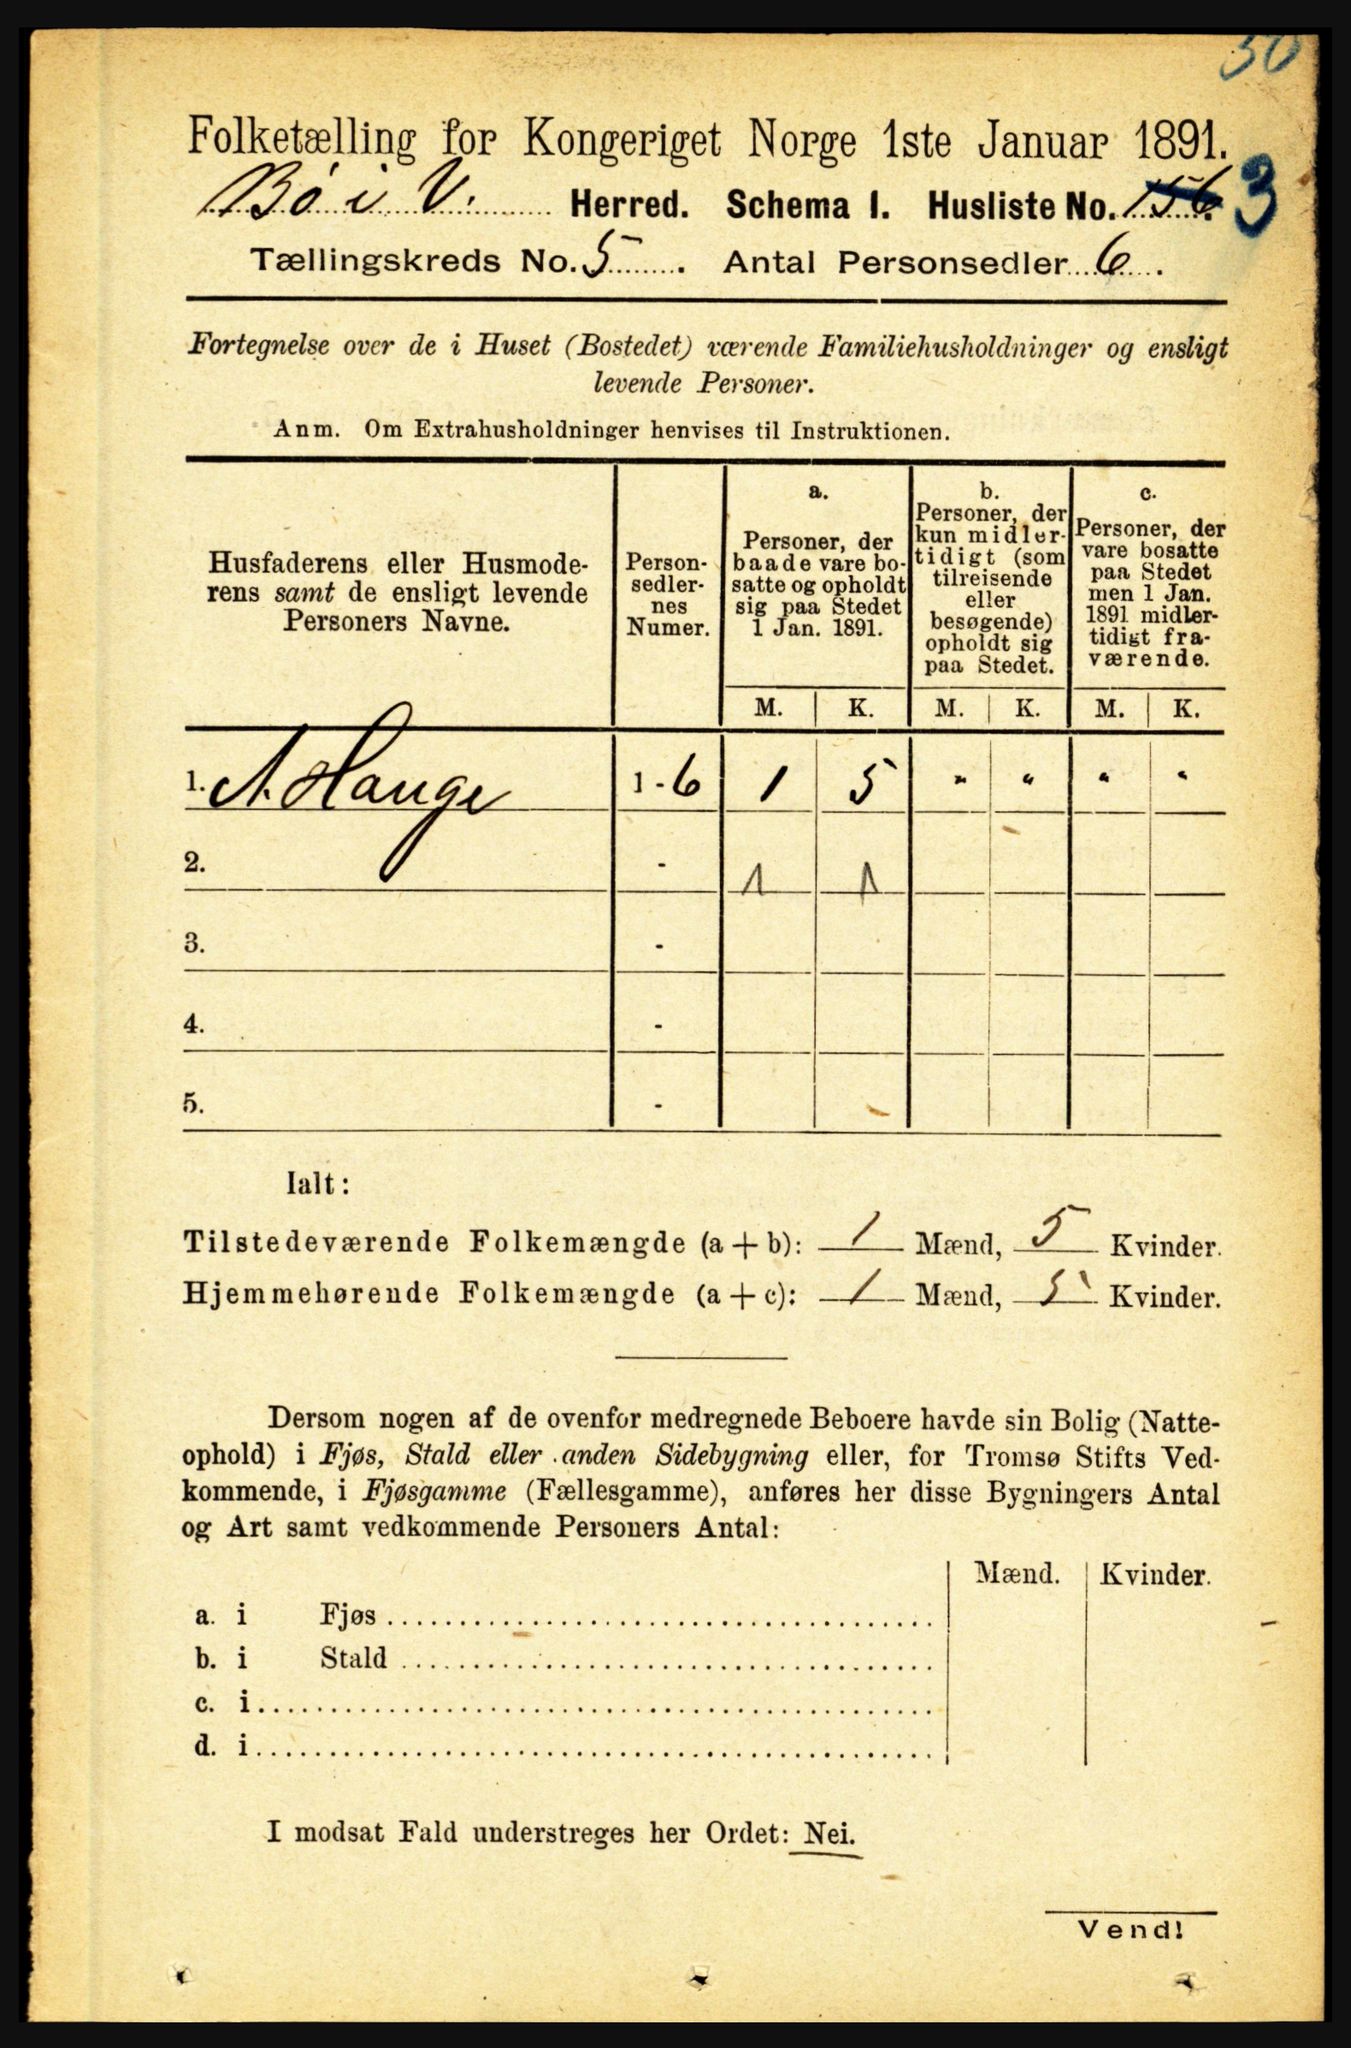 30
Folketælling for Kongeriget Norge 1ste Januar 1891.
Bø i V. Herred. Schema I. Husliste No. 156. 3
Tællingskreds No. 5. Antal Personsedler 6.
Fortegnelse over de i Huset (Bostedet) værende Familiehusholdninger og ensligt
levende Personer.
Anm. Om Extrahusholdninger henvises til Instruktionen.
Husfaderens eller Husmode-
rens samt de ensligt levende
Personers Navne.
Person-
sedler-
nes
Numer.
a.
Personer, der
baade vare bo-
satte og opholdt
sig paa Stedet
1 Jan. 1891.
b.
Personer, der
kun midler-
tidigt (som
tilreisende
eller
besøgende)
opholdt sig
paa Stedet.
c.
Personer, der
vare bosatte
paa Stedet
men 1 Jan.
1891 midler-
tidigt fra-
værende.
M. K. M. K. M. K.
1. A. Hauge 1 - 6 1 5 " " " "
2. - 1 1
3. -
4. -
5. -
Ialt:
Tilstedeværende Folkemængde (a + b): 1 Mænd, 5 Kvinder.
Hjemmehørende Folkemængde (a + c): 1 Mænd, 5 Kvinder.
Dersom nogen af de ovenfor medregnede Beboere havde sin Bolig (Natte-
ophold) i Fjøs, Stald eller anden Sidebygning eller, for Tromsø Stifts Ved-
kommende, i Fjøsgamme (Fællesgamme), anføres her disse Bygningers Antal
og Art samt vedkommende Personers Antal:
Mænd. Kvinder.
a. i Fjøs
b. i Stald
c. i
d. i
I modsat Fald understreges her Ordet: Nei.
Vend!